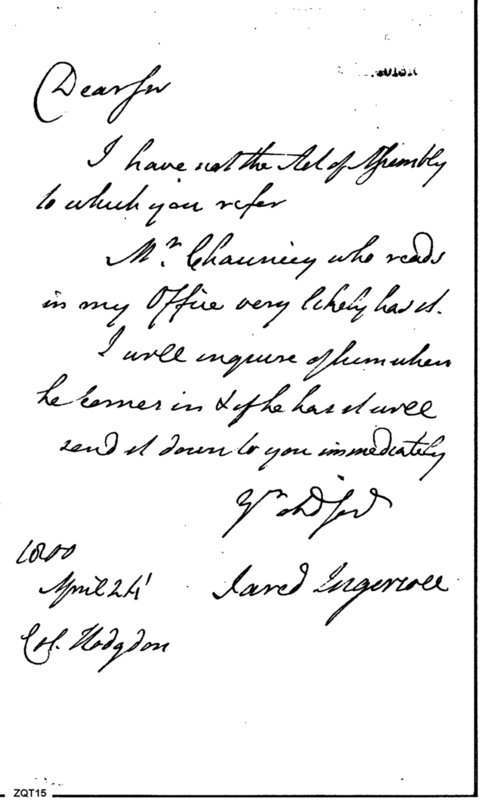 Dear Sir
I have not the Act of Assembly
to which you refer
Mr. Chauncey who reads
in my Office very likely has it.
I will inquire of him when
he comes in & if he has it will
send it down to you immediately
Yr obd Servt
1800
April 24 Jared Ingersoll
Col. Hodgdon
ZQT15